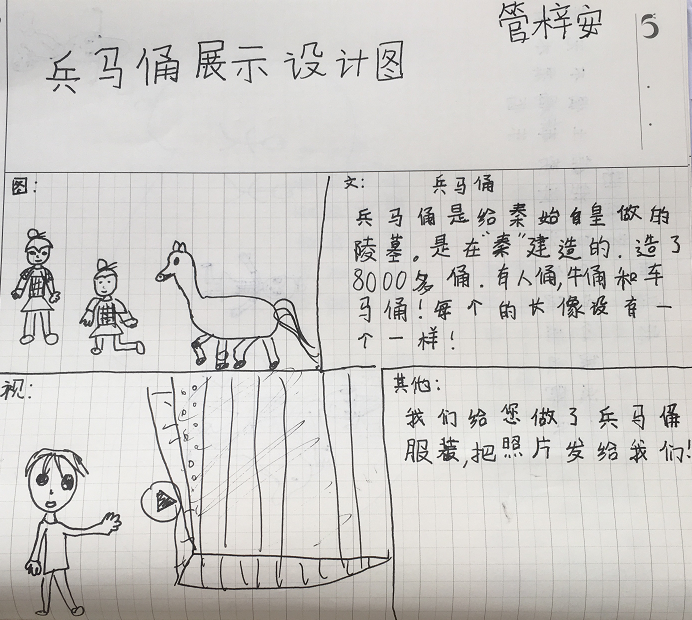 管梓安
5
兵马俑展示设计图
图:
文: 兵马俑
兵马俑是给秦始皇做的
陵墓。是在"秦"建造的.造了
8000多俑.有人俑,牛俑和车
马俑!每个的长像没有一
个一样!
视:
其他:
我们给您做了兵马俑
服装,把照片发给我们!